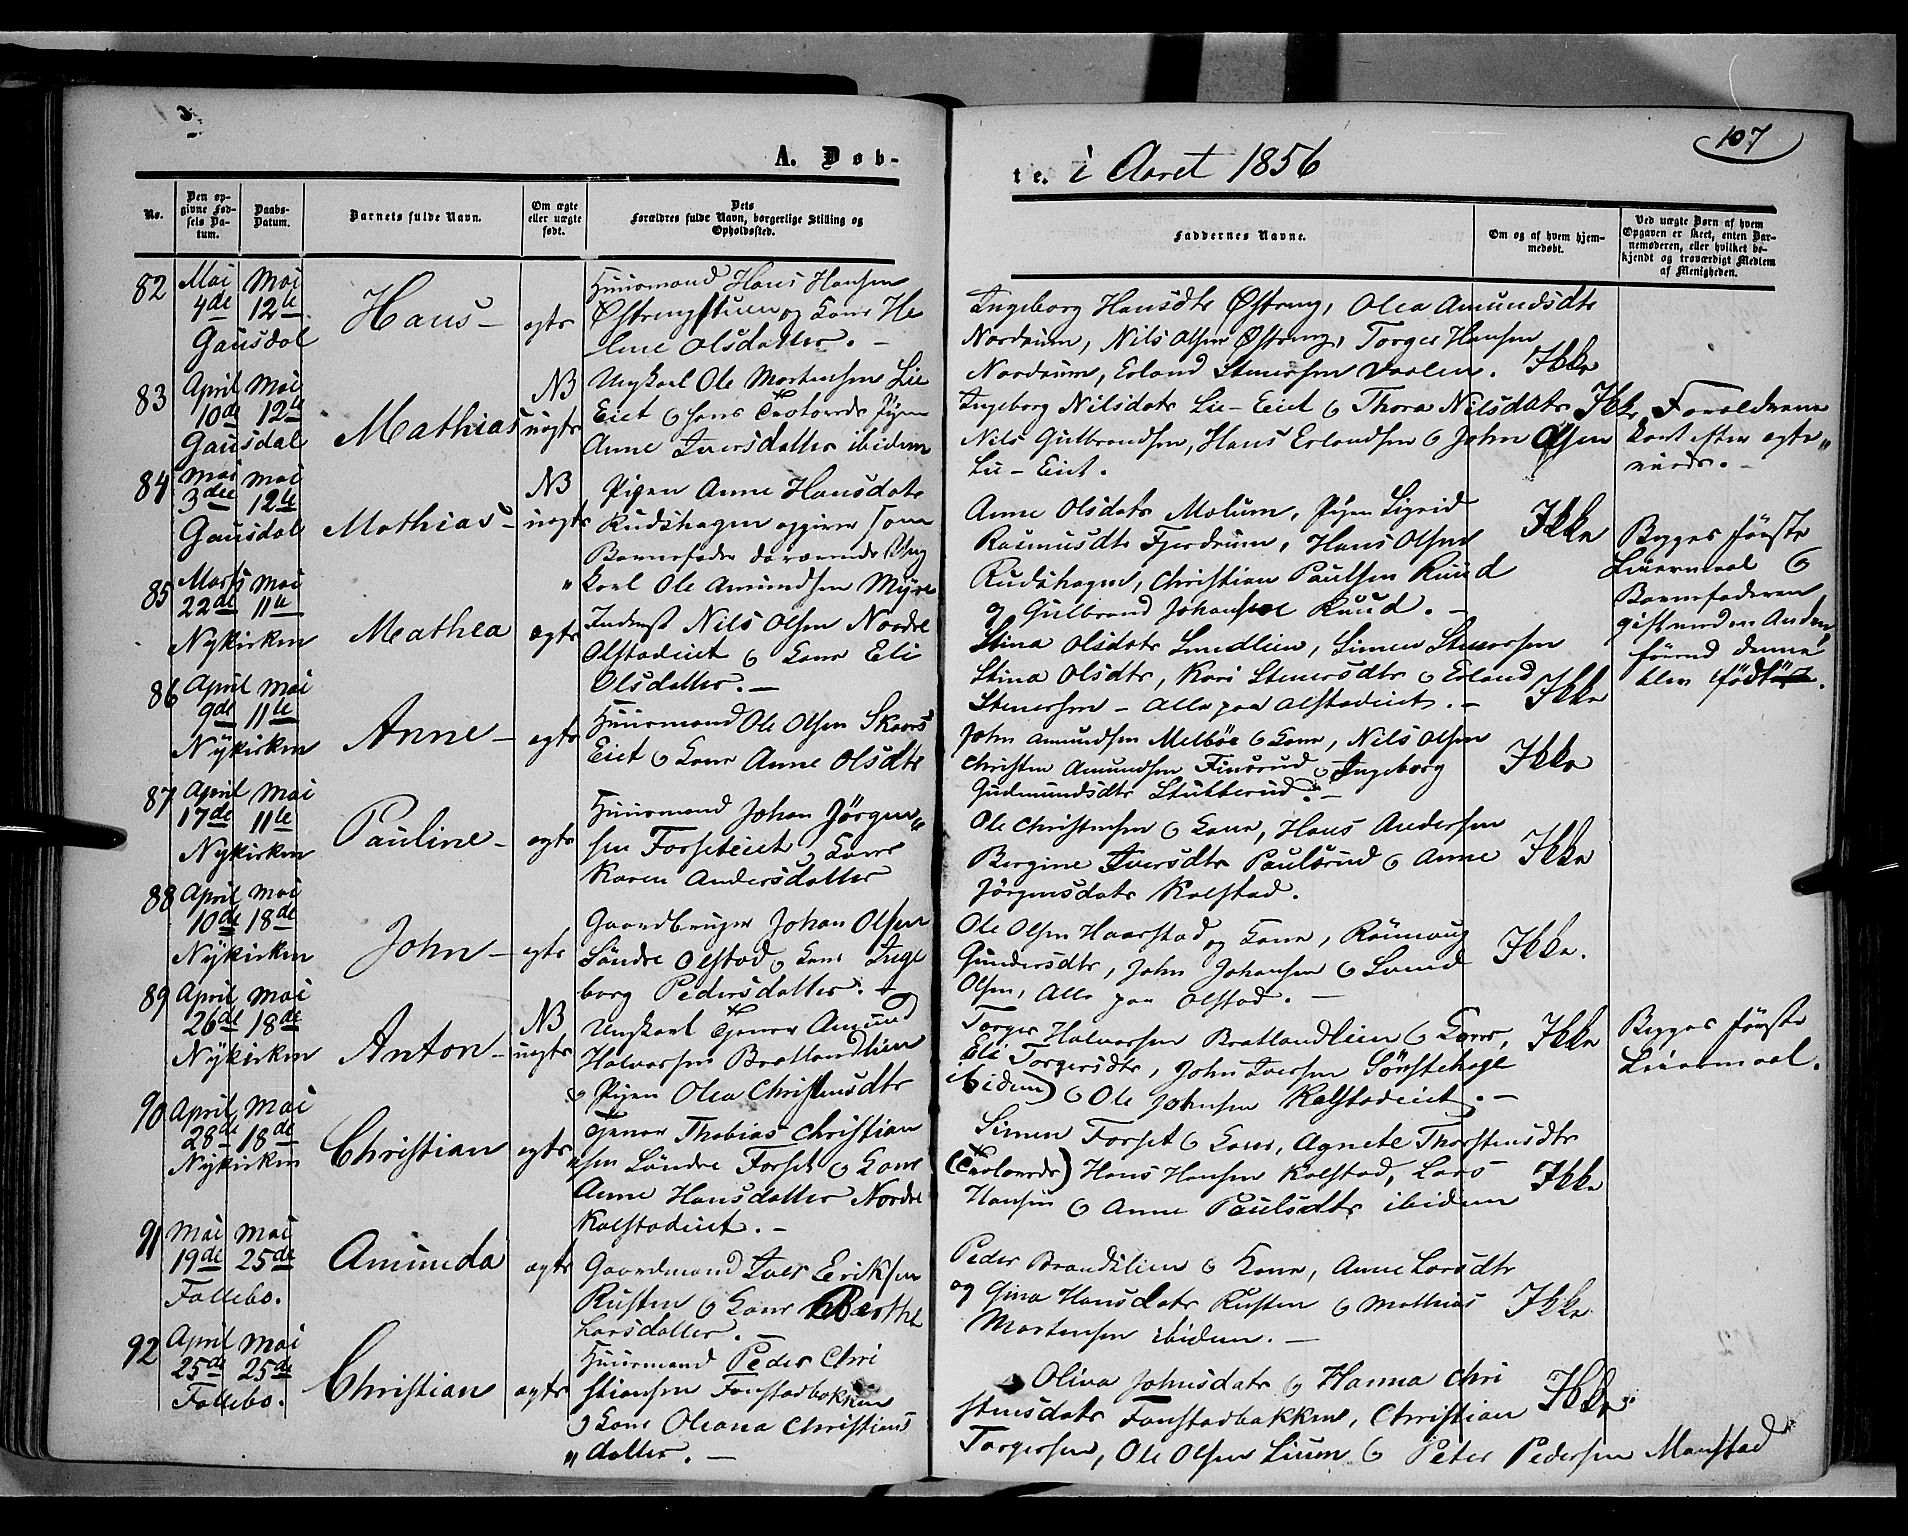 107
A. Døb-
te. i Aaret 1856
No.
Den op-
givne Fød-
sels Da-
tum.
Daabs-
Datum.
Barnets fulde Navn.
Om ægte
eller uægte
født.
Dets
Forældres fulde Navn, borgerlige Stilling og
Opholdssted.
Faddernes Navne.
Om og af hvem hjem-
medøbt.
Ved uægte Børn af hvem
Opgaven er skeet, enten Bar-
nemoderen, eller hvilket be-
kjendt og troværdigt Medlem
af Menigheden.
82
Mai
4de
Mai
12te
Gausdal
Hans –
egte
Huusmand Hans Hansen
Østrengstuen og Kone He
lene Olsdatter. –
Ingeborg Hansdtr Østreng, Olea Amundsdtr
Nordrum, Nils Olsen Østreng, Torger Hansen
Nordrum, Erland Stenersen Dalen.
Ikke
83
April
10de
Mai
12te
Gausdal
Mathias
NB
uegte
Ungkarl Ole Mortensen Lie
Eiet & hans Trolovede Pigen
Anne Iversdatter ibidem
Ingeborg Nilsdatr Lie-Eiet & Thora Nilsdatr
Nils Gulbrandsen, Hans Erlandsen & John Olsen
Lie-Eiet.
Ikke
Forældrene
kort efter egte„
viede. –
84
Mai
3die
Mai
12te
Gausdal
Mathias –
NB
uegte
Pigen Anne Hansdatr
Rudshagen opgiver som
Barnefader daværende Ung
„karl Ole Amundsen Myre
Anne Olsdatr Molum, Pigen Sigrid
Rasmusdtr Fjerdrum, Hans Olsen
Rudshagen, Christian Paulsen Ruud
og Gulbrand Johansen Ruud. –
Ikke
Begges første
Leiermaal &
Barnefaderen
gift med en Anden
førend denne
blev født.
85
Marts
22de
Mai
11te
Nykirken
Mathea
egte
Inderst Nils Olsen Nordre
Olstadeiet & Kone Eli
Olsdatter. –
Stina Olsdatr Smedlien, Simen Stenersen
Stina Olsdtr, Kari Stenersdtr & Erland
Stenersen – Alle paa Olstadeiet. –
Ikke
86
April
9de
Mai
11te
Nykirken
Anne –
egte
Huusmand Ole Olsen Skaars
Eiet & Kone Anne Olsdtr
John Amundsen Melbøe & Kone, Nils Olsen
Christen Amundsen Finsrud & Ingeborg
Gudmundsdtr Stubberud. –
Ikke
87
April
17de
Mai
11te
Nykirken
Pauline –
egte
Huusmand Johan Jørgen„
sen Forseteiet & Kone
Karen Andersdatter
Ole Christensen & Kone, Hans Andersen
Bergine Iversdtr Paulsrud & Anne
Jørgensdatr Kalstad.
Ikke
88
April
10de
Mai
18de
Nykirken
John –
egte
Gaardbruger Johan Olsen
Søndre Olstad & Kone Inge
borg Pedersdatter. –
Ole Olsen Haarstad og Kone, Rønnaug
Gundersdtr, John Johansen & Svend
Olsen, Alle paa Olstad. –
Ikke.
89
April
26de
Mai
18de
Nykirken
Anton –
NB
uegte
Ungkarl Tjener Amund
Halvorsen Bratlandlien
& Pigen Olea Christensdtr
Torger Halvorsen Bratlandlien & Kone,
Eli Torgersdtr, John Iversen Sønstehage
ibidem) & Ole Johnsen Kalstadeiet. –
Ikke
Begges første
Leiermaal.
90
April
28de
Mai
18de
Nykirken
Christian
egte
Tjener Thobias Christian
„sen Søndre Forset & Kone
Anne Hansdatter Nordre
Kalstadeiet. –
Simen Forset & Kone, Agnete Thorstensdtr
(Trolovede) Hans Hansen Kalstad, Lars
Hansen & Anne Paulsdtr ibidem
Ikke
91
Mai
19de
Mai
25de
Follebo.
Amunda
egte
Gaardmand Iver Eriksen
Rusten & Kone Berthe
Larsdatter. –
Peder Brandslien & Kone, Anne Larsdtr
og Gina Hansdatr Rusten & Mathias
Mortensen ibidem. –
Ikke
92
April
25de
Mai
25de
Follebo.
Christian
egte
Huusmand Peder Chri
stiansen Fonstadbakken
& Kone Oleana Christians
„datter. –
Oliva Johnsdatr & Hanna Chri
stensdatr Fonstadbakken, Christian
Torgersen, Ole Olsen Lium & Peter Pedersen Monstad
Ikke.